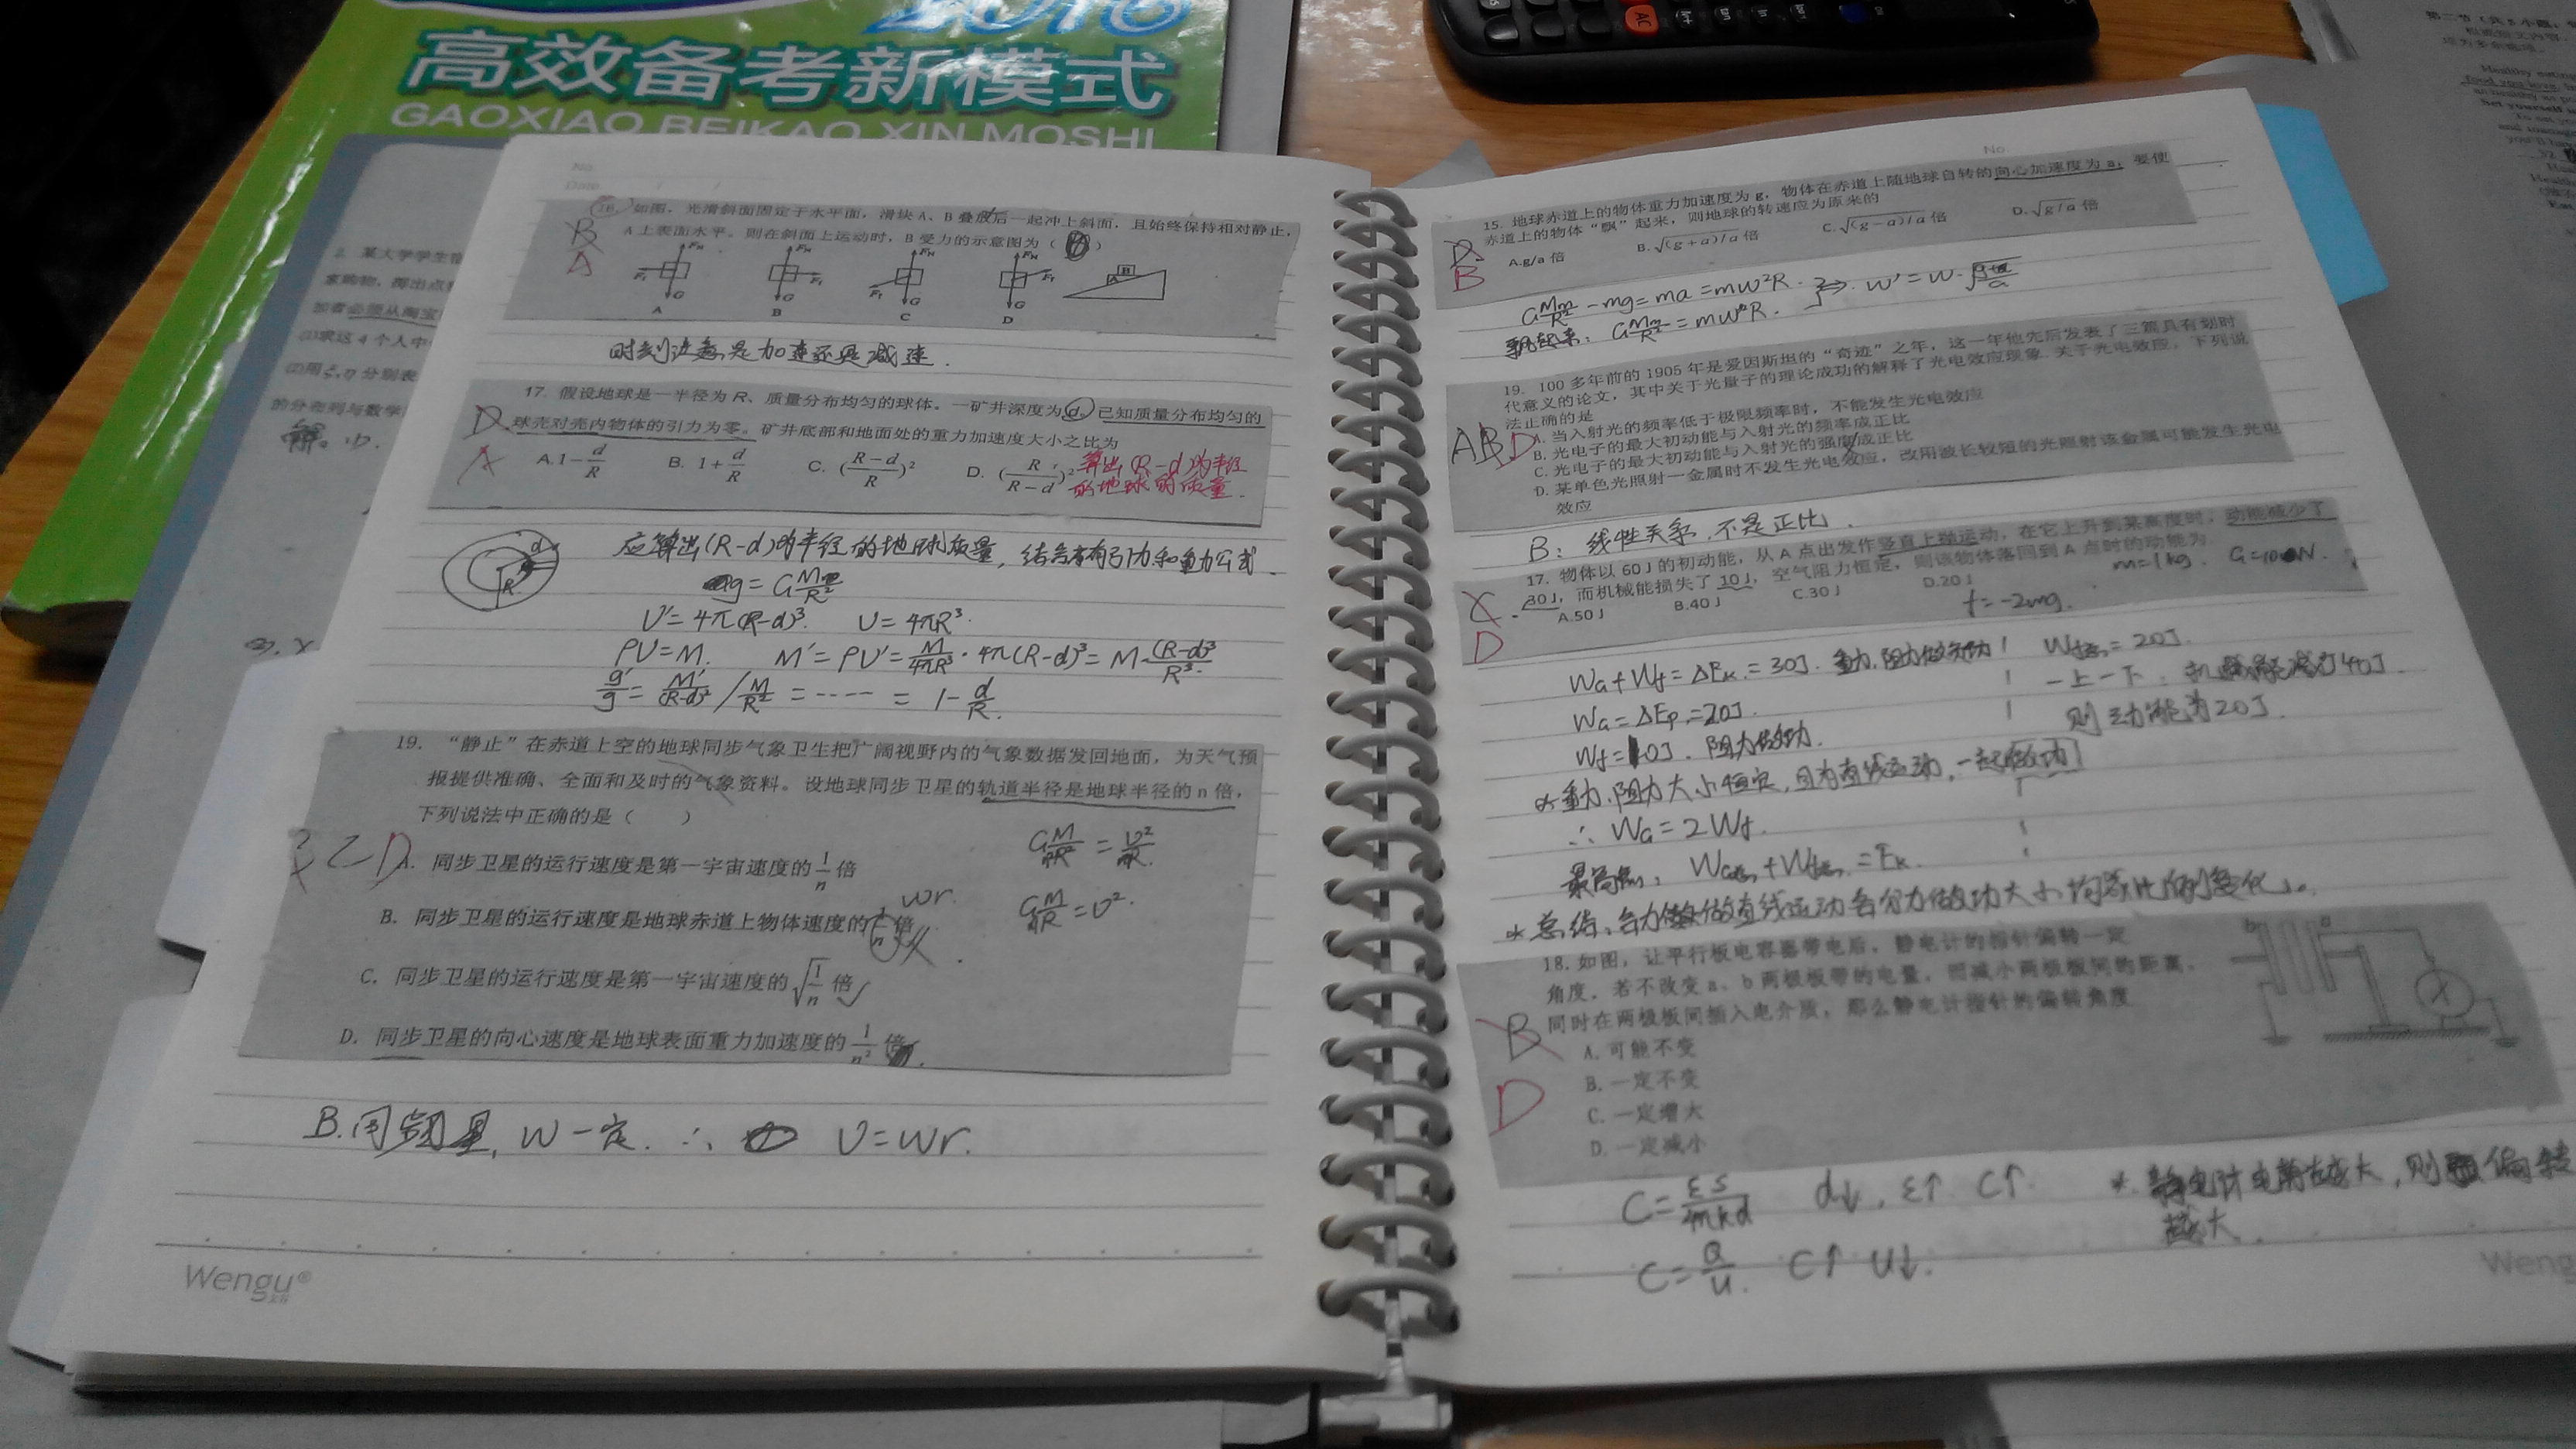 2016
高效备考新模式
GAOXIAO BEIKAO XIN MOSHI
2. 某大学学生
(1)求这4个人中
(2)用ξ,η分别表
的分布列与数学
解。(1).
No.
Date / /
16. 如图,光滑斜面固定于水平面,滑块A、B叠放后一起冲上斜面,且始终保持相对静止,
A上表面水平。则在斜面上运动时,B受力的示意图为( )
B
A
A B C D
时刻注意是加速还是减速.
17. 假设地球是一半径为R、质量分布均匀的球体。一矿井深度为d。已知质量分布均匀的
球壳对壳内物体的引力为零。矿井底部和地面处的重力加速度大小之比为
D.
A
A. 1-d/R B. 1+d/R C. ((R-d)/R)² D. (R/(R-d))²
算出(R-d)为半径
的地球的质量.
应算出(R-d)为半径的地球质量,结合万有引力和重力公式.
g=GM/R²
V'=4π(R-d)³. V=4πR³.
ρV=M. M'=ρV'=M/4πR³·4π(R-d)³=M·(R-d)³/R³.
g'/g=M'/(R-d)²/M/R²=----=1-d/R.
19. “静止”在赤道上空的地球同步气象卫生把广阔视野内的气象数据发回地面,为天气预
报提供准确、全面和及时的气象资料。设地球同步卫星的轨道半径是地球半径的n倍,
下列说法中正确的是( )
C
A. 同步卫星的运行速度是第一宇宙速度的1/n倍
B. 同步卫星的运行速度是地球赤道上物体速度的1/n倍
wr.
C. 同步卫星的运行速度是第一宇宙速度的√(1/n)倍
D. 同步卫星的向心速度是地球表面重力加速度的1/n²倍
GM/nR=v².
B.同步卫星, w一定. ∴ v=wr.
Wengu®
No.
15. 地球赤道上的物体重力加速度为g,物体在赤道上随地球自转的向心加速度为a,要使
赤道上的物体“飘”起来,则地球的转速应为原来的
D.
B
A.g/a倍 B.√(g+a)/a倍 C.√(g-a)/a倍 D.√g/a倍
GMm/R²-mg=ma=mw²R. ⇒ w'=w·√(g+a)/a
飘起来: GMm/R²=mw'²R.
19. 100多年前的1905年是爱因斯坦的“奇迹”之年,这一年他先后发表了三篇具有划时
代意义的论文,其中关于光量子的理论成功的解释了光电效应现象.关于光电效应,下列说
法正确的是
ABD
A. 当入射光的频率低于极限频率时,不能发生光电效应
B. 光电子的最大初动能与入射光的频率成正比
C. 光电子的最大初动能与入射光的强度成正比
D. 某单色光照射一金属时不发生光电效应,改用波长较短的光照射该金属可能发生光电
效应
B: 线性关系,不是正比.
17. 物体以60J的初动能,从A点出发作竖直上抛运动,在它上升到某高度时,动能减少了
30J,而机械能损失了10J,空气阻力恒定,则该物体落回到A点时的动能为
D
A.50J B.40J C.30J D.20J
m=1kg. G=10N.
WG+Wf=ΔEk=30J. 重力,阻力做负功
WG=ΔEp=20J.
Wf=10J. 阻力做功.
*重力,阻力大小恒定,且为直线运动,一起做功
∴ WG=2Wf.
最高点: WG总+Wf总=Ek.
Wf总=20J.
一上一下:机械能减少40J.
则动能为20J.
18. 如图,让平行板电容器带电后,静电计的指针偏转一定
角度,若不改变a、b两极板带的电量,而减小两极板间的距离,
同时在两极板间插入电介质,那么静电计指针的偏转角度
B
D
A. 可能不变
B. 一定不变
C. 一定增大
D. 一定减小
b a
C=εs/4πkd d↓, ε↑ C↑.
C=Q/U. C↑ U↓.
越大.
Weng